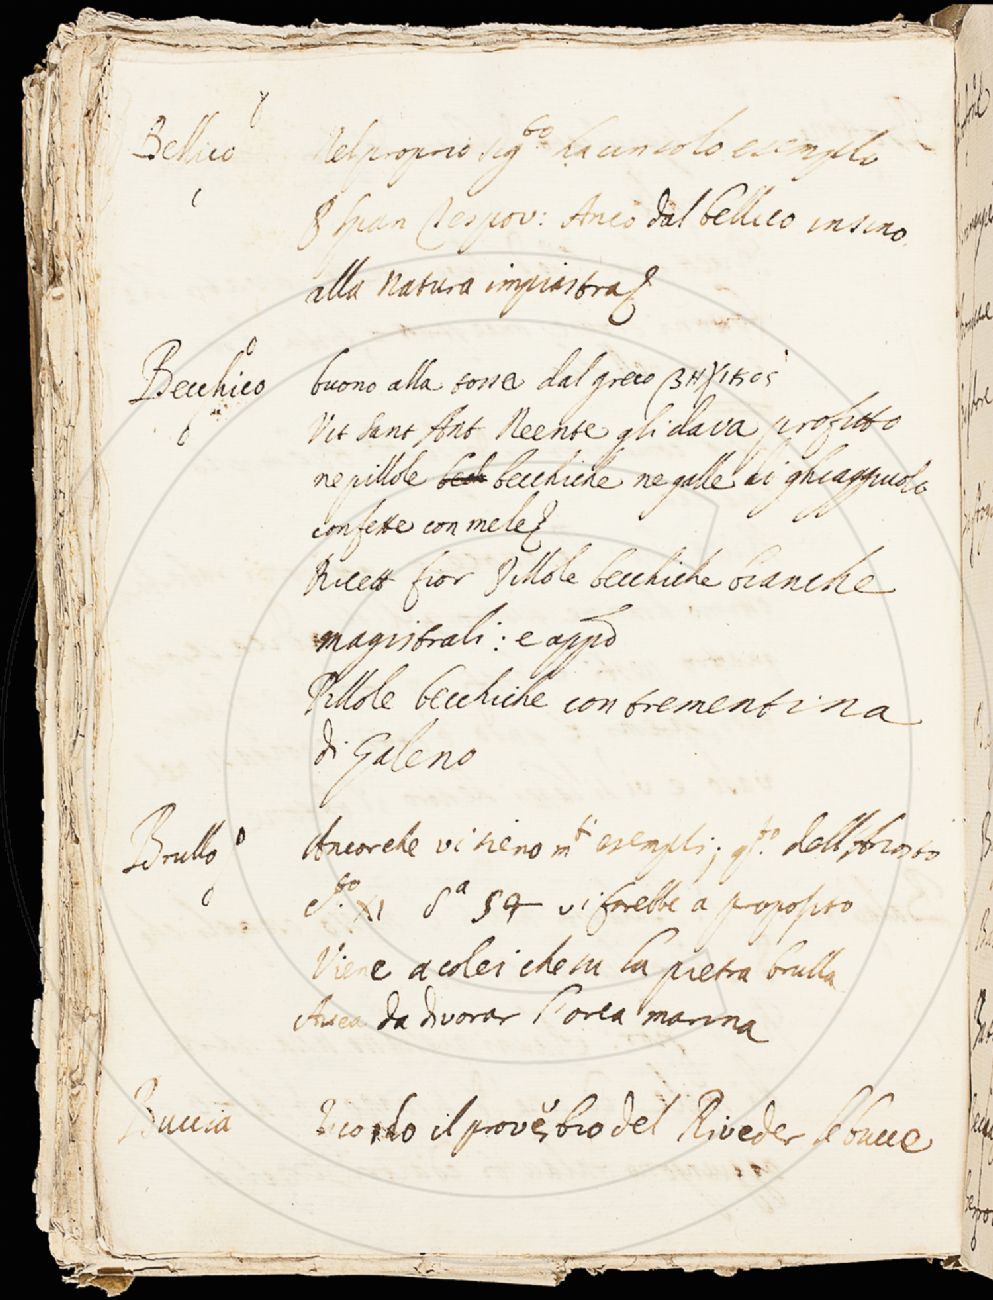 Bellico Nel proprio sig.to ha un solo esempio
alla natura impiastra
Becchico buono alla tosse dal greco βηχικός
Vit Sant Ant Neente gli dava profitto
ne pillole bech becchiche ne galle di ghiaggiuolo
confette con mele
Ricett fior Pillole becchiche bianche
magistrali: e app.o
Pillole becchiche con trementina
di Galeno
Brullo Ancorche vi sieno m.ti esempli; q.to dell Ariosto
C.to XI S.a 54 vi sarebbe a proposito
Viene a colei che su la pietra brulla
Avea da divorar l'orca marina
Buccia Ricordo il proverbio del Riveder le bucce